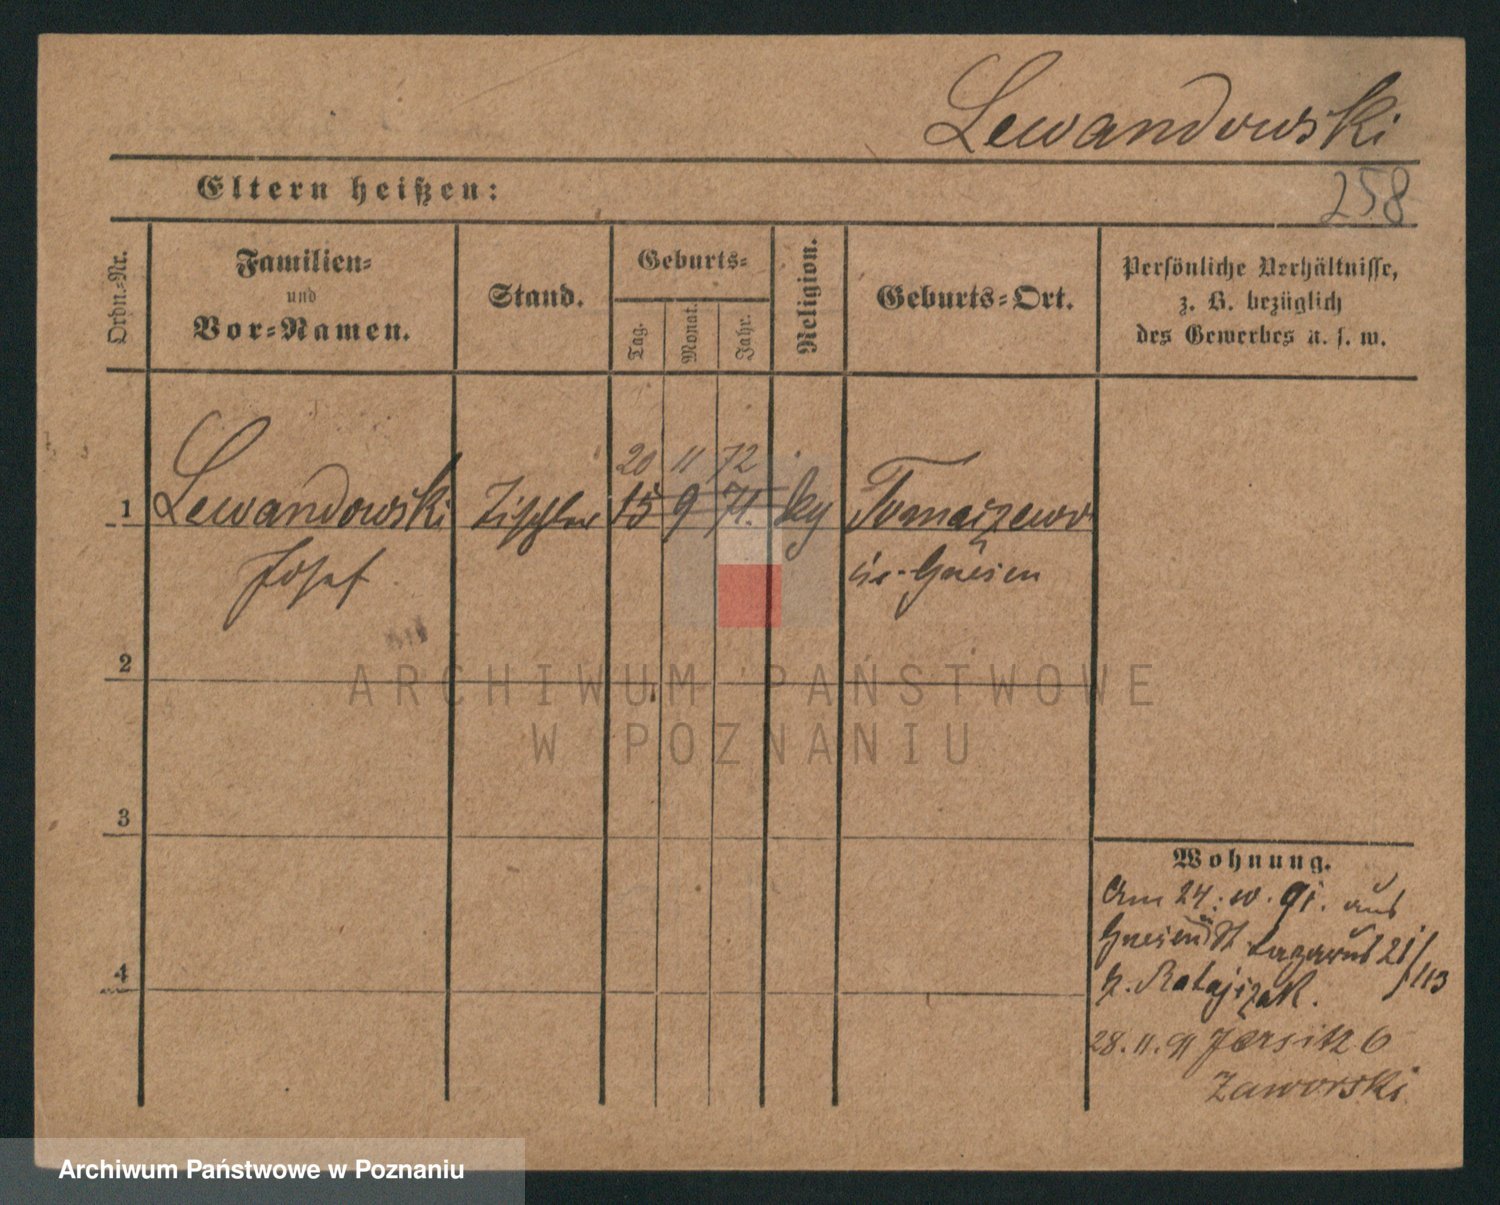 Lewandowski
Eltern heißen:
258
Ordn.-Nr.
Familien-
und
Vor-Namen.
Stand.
Geburts-
Tag.
Monat.
Jahr.
Religion.
Geburts-Ort.
Persönliche Verhältnisse,
z. B. bezüglich
des Gewerbes u. s. w.
20 11 72
1 Lewandowski Tischler 15 9 71. Tomaszewo
Josef Gnesen
2
ARCHIWUM PAŃSTWOWE
W POZNANIU
3
Wohnung.
Am 24. 91. aus
Gnesen St Lazarus 21/
113
b. Ratajszak.
4
28.11.91 Jersitz 6
Zaworski
Archiwum Państwowe w Poznaniu